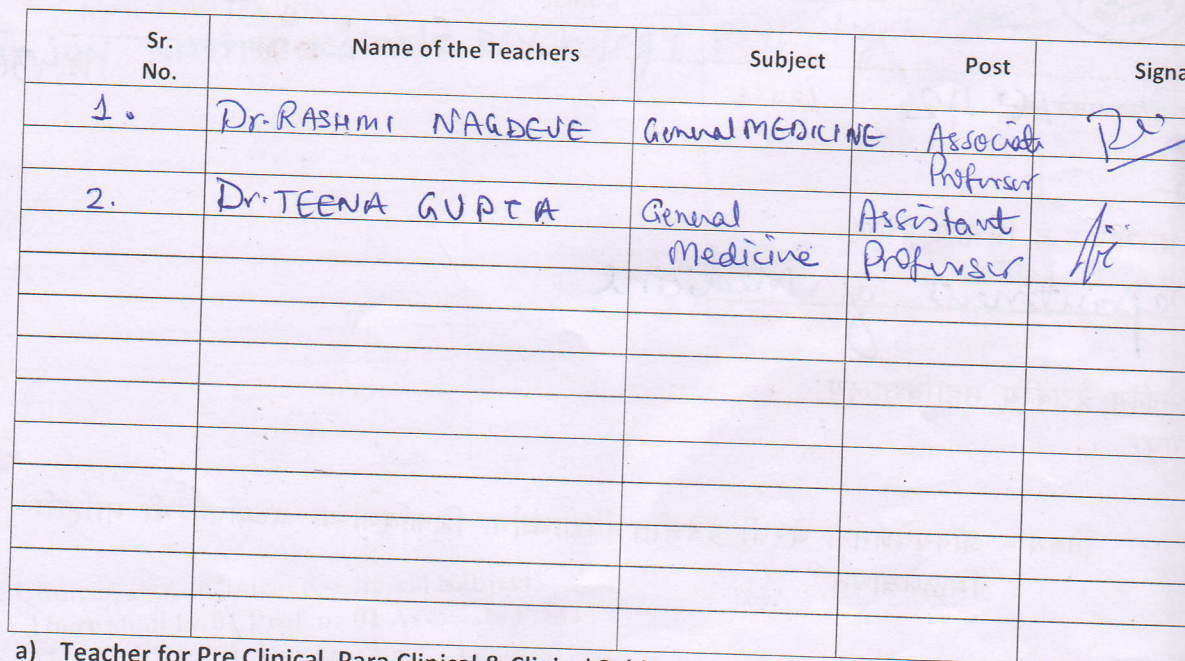 Sr. No. Name of the Teachers Subject Post
1. Dr. RASHMI NAGDEVE General MEDICINE Associate
Professor
2. Dr. TEENA GUPTA General Assistant
Medicine Professor
a) Teacher for Pre Clinical, Para Clinical & Clinical